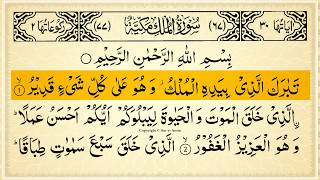 اٰيَاتُهَا ٣٠ (٦٧) سُوْرَةُ الْمُلْكِ مَكِّيَّةٌ (٧٧) رُكُوْعَاتُهَا ٢
بِسْمِ اللّٰهِ الرَّحْمٰنِ الرَّحِيْمِ
تَبٰرَكَ الَّذِيْ بِيَدِهِ الْمُلْكُ وَهُوَ عَلٰى كُلِّ شَيْءٍ قَدِيْرُ ۙ﴿١﴾
الَّذِيْ خَلَقَ الْمَوْتَ وَالْحَيٰوةَ لِيَبْلُوَكُمْ اَيُّكُمْ اَحْسَنُ عَمَلًا ؕ
وَهُوَ الْعَزِيْزُ الْغَفُوْرُ ۙ﴿٢﴾ الَّذِيْ خَلَقَ سَبْعَ سَمٰوٰتٍ طِبَاقًا ؕ